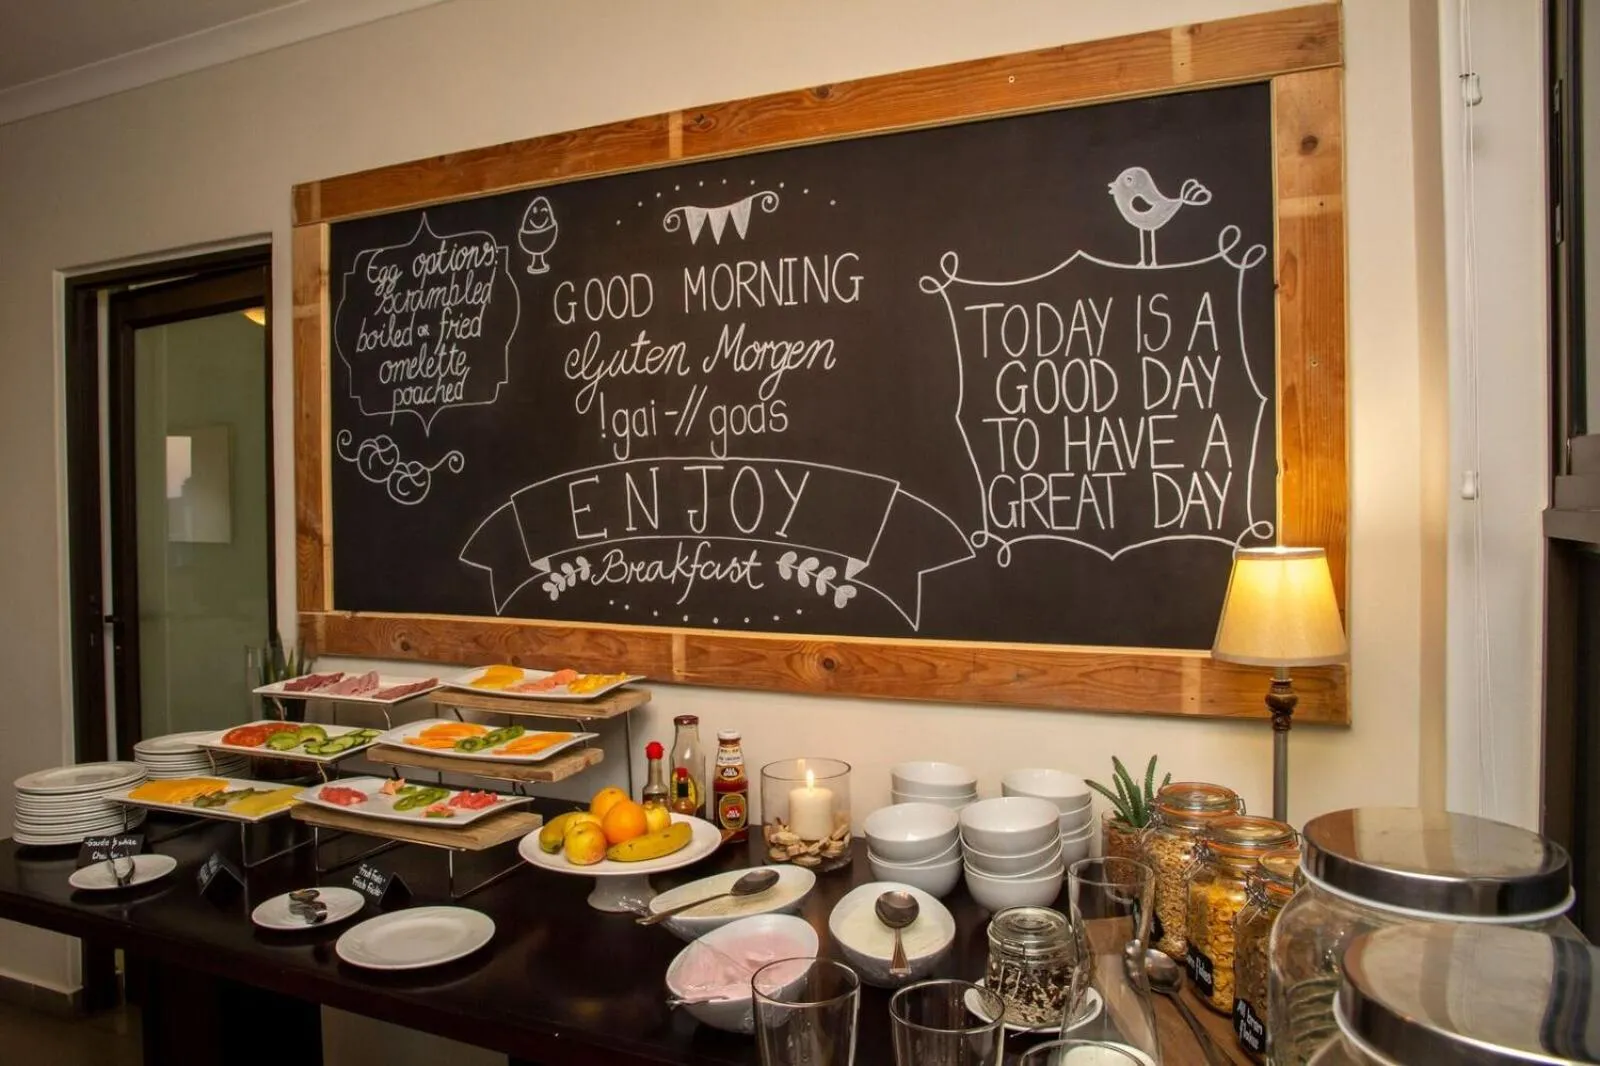 Egg options:
scrambled
boiled or fried
omelette
poached
GOOD MORNING
Guten Morgen
!gai-//goas
ENJOY
Breakfast
TODAY IS A
GOOD DAY
TO HAVE A
GREAT DAY
Gouda & white
Fresh Fruit
Flakes
All bran
flakes